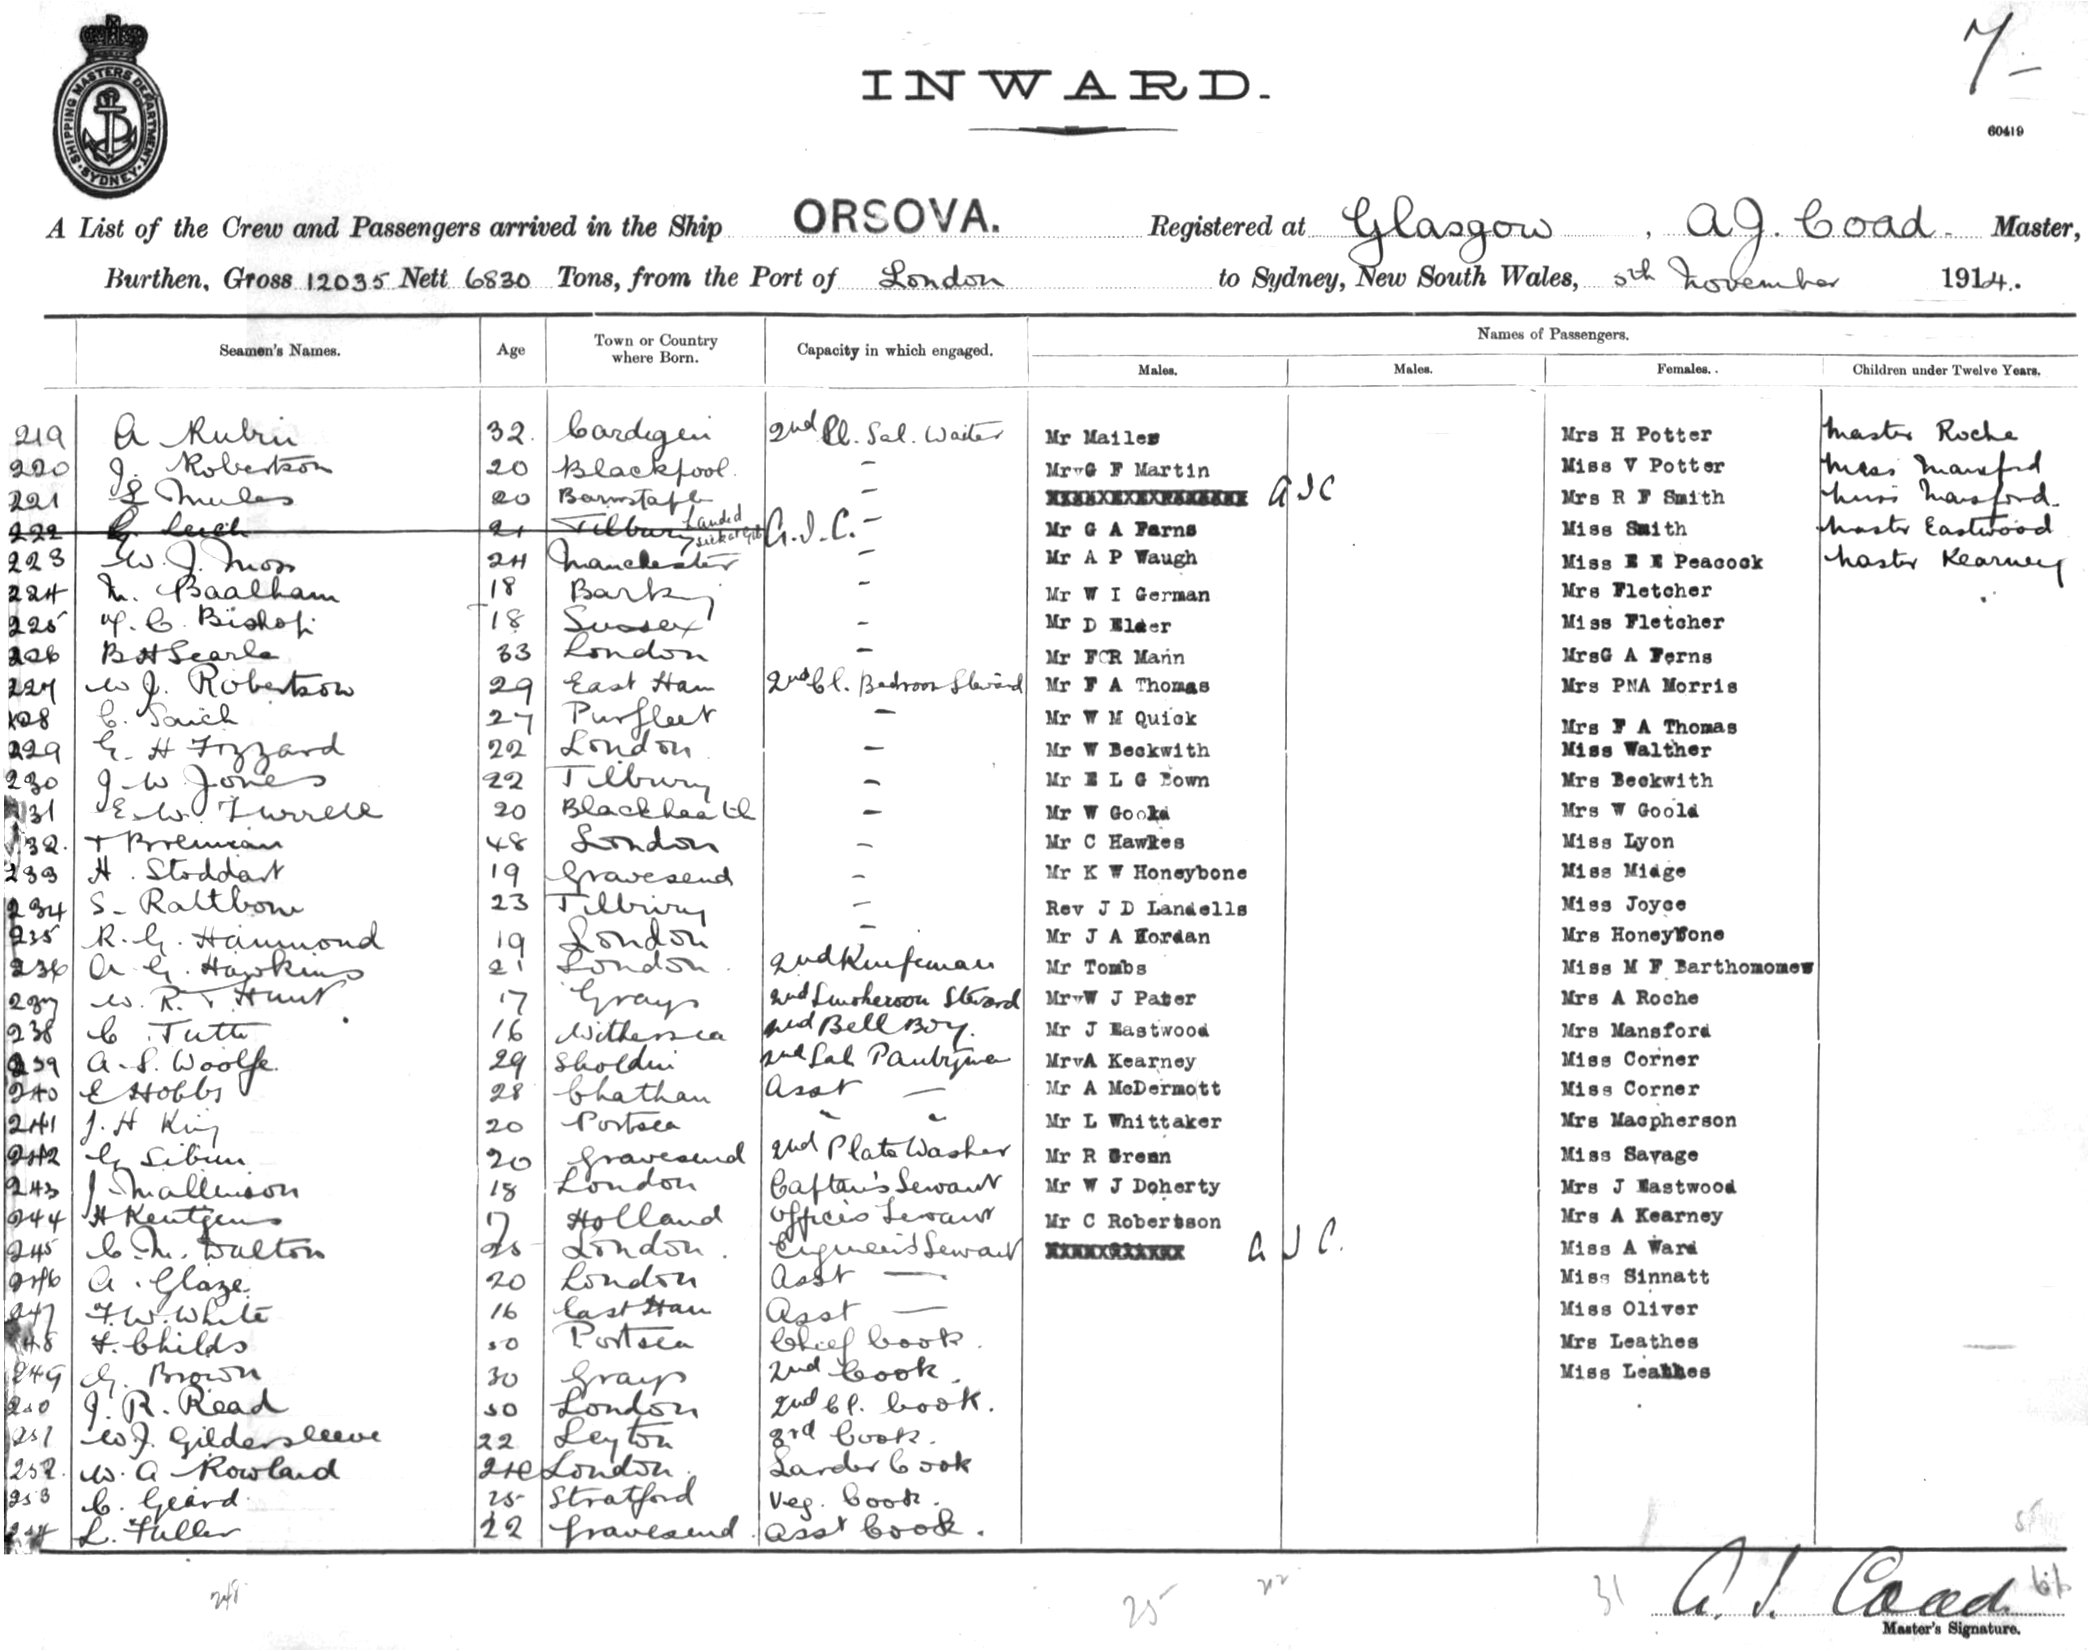 7/-
INWARD.
60419
SHIPPING MASTERS DEPARTMENT · SYDNEY ·
A List of the Crew and Passengers arrived in the Ship ORSOVA. Registered at Glasgow, A.J. Coad. Master,
Burthen, Gross 12035 Nett 6830 Tons, from the Port of London to Sydney, New South Wales, 5th November 1914.
Seamen's Names. Age Town or Country where Born. Capacity in which engaged. Names of Passengers.
Males. Males. Females. Children under Twelve Years.
219 A Rubin 32 Cardigan 2nd Cl. Sal. Waiter Mr Mailes Mrs H Potter Master Roche
220 J. Robertson 20 Blackpool. – Mr G F Martin Miss V Potter Miss Mansford
221 L Mules 20 Barnstaple – A J C Mrs R F Smith Miss Mansford.
222 21 Tilbury Landed sick at G.J.C. – Mr G A Farns Miss Smith Master Eastwood
223 W. J. Moss 24 Manchester – Mr A P Waugh Miss E E Peacock Master Kearney
224 M. Baalham 18 Barking – Mr W I German Mrs Fletcher
225 C. Bishop 18 Sussex – Mr D Elder Miss Fletcher
226 B H Searle 33 London – Mr F C R Mann Mrs G A Ferns
227 W J. Robertson 29 East Ham 2nd Cl. Bedroom Steward Mr F A Thomas Mrs PNA Morris
228 C. Saich 27 Purfleet – Mr W M Quick Mrs F A Thomas
229 G. H Fozzard 22 London – Mr W Beckwith Miss Walther
230 J W Jones 22 Tilbury – Mr E L G Down Mrs Beckwith
231 E. W. Turrell 20 Blackheath – Mr W Goold Mrs W Goold
232. T Brennan 48 London – Mr C Hawkes Miss Lyon
233 H. Stoddart 19 Gravesend – Mr K W Honeybone Miss Midge
234 S. Rattbone 23 Tilbury – Rev J D Landells Miss Joyce
235 R. G. Hammond 19 London – Mr J A Hordan Mrs Honeybone
236 A. G. Hawkins 21 London. 2nd Knifeman Mr Tombs Miss M F Barthomomew
237 W. R. T Hunt 17 Grays 2nd Smokeroom Steward Mr W J Pater Mrs A Roche
238 C. Tutte 16 Withersea 2nd Bell Boy. Mr J Eastwood Mrs Mansford
239 A. S. Woolfe. 29 Sholdin 2nd Sal Pantryman Mr A Kearney Miss Corner
240 E Hobbs 28 Chatham Asst – Mr A McDermott Miss Corner
241 J. H King 20 Portsea " " Mr L Whittaker Mrs Macpherson
242 G Sibun 20 Gravesend 2nd Plate Washer Mr R Green Miss Savage
243 J. Mallinson 18 London Captain's Servant Mr W J Doherty Mrs J Eastwood
244 H Kentgens 17 Holland Officers Servant Mr C Robertson Mrs A Kearney
245 C. M. Walton 25 London. Engineers Servant A J C. Miss A Ward
246 A. Glaze. 20 London Asst – Miss Sinnatt
247 F. W. White 16 East Ham Asst – Miss Oliver
248 F. Childs 50 Portsea Chief Cook. Mrs Leathes
249 G. Brown 30 Grays 2nd Cook. Miss Leathes
250 J. R. Read 50 London 2nd Cl. Cook.
251 W. J. Gildersleeve 22 Leyton 3rd Cook.
252. W. A Rowland London. Larder Cook
253 C. Geard 25 Stratford Veg. Cook.
254 L. Fuller 22 Gravesend Asst Cook.
248 25 31 A. J. Coad
Master's Signature.